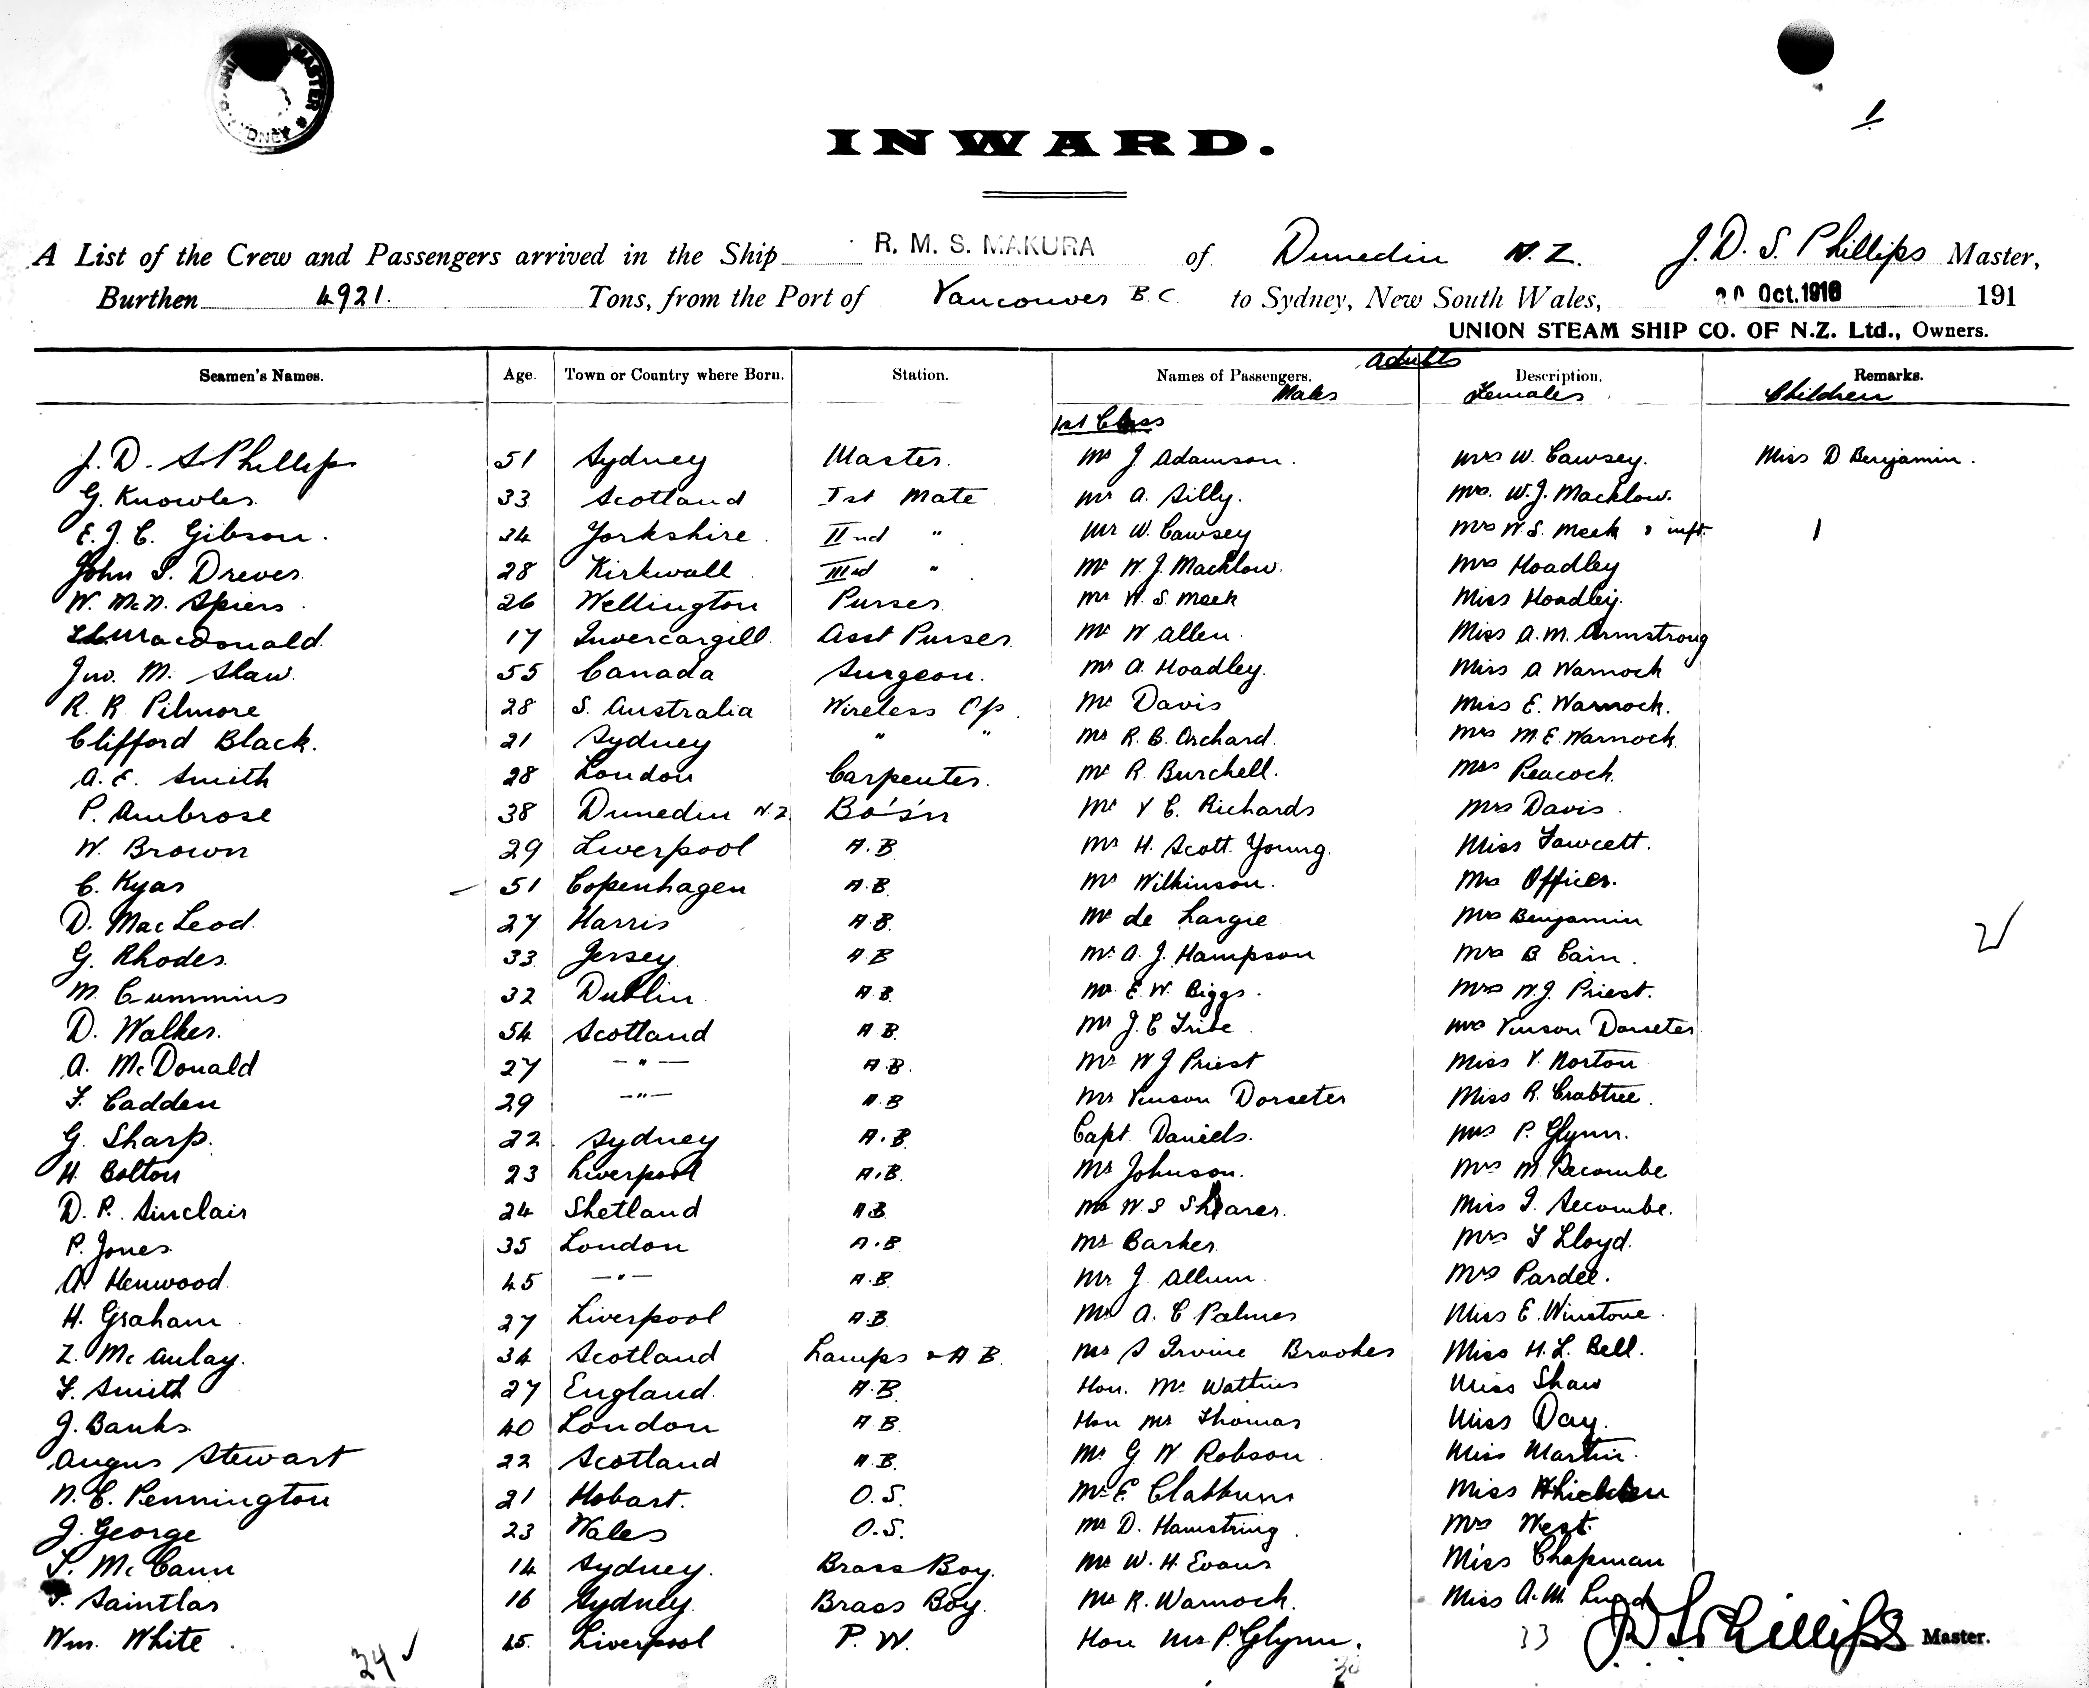 1
INWARD.
A List of the Crew and Passengers arrived in the Ship R. M. S. MAKURA of Dunedin N.Z. J. D. S. Phillips Master,
Burthen 4921. Tons, from the Port of Vancouver B.C. to Sydney, New South Wales, 20 Oct. 1916 191
UNION STEAM SHIP CO. OF N.Z. Ltd., Owners.
Adults
Seamen's Names. Age. Town or Country where Born. Station. Names of Passengers. Description. Remarks.
Males Females Children
1st Class
J. D. S. Phillips 51 Sydney Master. Mr J. Adamson. Mrs W. Cawsey. Miss D Benjamin.
G. Knowles 33 Scotland Ist Mate Mr A. Silly. Mrs. W.J. Macklow.
E. J. C. Gibson. 34 Yorkshire IInd " Mr W. Cawsey Mrs W.S. Meek & inft. 1
John S. Drever 28 Kirkwall IIIrd " Mr W. J. Macklow. Mrs Hoadley
W. McN. Spiers 26 Wellington Purser Mr W. S. Meek Miss Hoadley.
Macdonald 17 Invercargill Asst Purser Mr W Allen. Miss A.M. Armstrong
Jno. M. Shaw. 55 Canada Surgeon. Mr A. Hoadley. Miss A Warnock
R. R. Pilmore 28 S. Australia Wireless Op. Mr Davis Miss E. Warnock.
Clifford Black. 21 Sydney " " Mr R. B. Orchard. Mrs M.E. Warnock
A. E. Smith 28 London Carpenter. Mr R. Burchell. Mrs Peacock.
P. Ambrose 38 Dunedin N.Z. Bo's'n Mr V C. Richards Mrs Davis
W. Brown 29 Liverpool A.B Mr H. Scott Young. Miss Fawcett.
C. Kyar 51 Copenhagen A.B. Mr Wilkinson. Mrs Officer.
D. MacLeod 27 Harris A.B. Mr de Largie Mrs Benjamin
G. Rhodes 33 Jersey A B Mr A. J. Hampson Mrs B Cain.
M. Cummins 32 Dublin A.B. Mr E. W. Biggs. Mrs W.J. Priest.
D. Walker. 54 Scotland A B. Mr J. C Tribe Mrs Vinson Dorseter
A. McDonald 27 — " — A.B. Mr W J Priest Miss V. Norton
F. Cadden 29 — " — A.B Mr Vinson Dorseter Miss R. Crabtree.
G. Sharp. 22 Sydney A.B. Capt. Daniels. Mrs P. Glynn.
H. Bolton 23 Liverpool A.B. Mr Johnson. Mrs M. Secombe
D. P. Sinclair 24 Shetland A.B. Mr W. S Shearer. Miss I. Secombe.
P. Jones 35 London A.B Mr Barker Mrs F Lloyd.
A. Henwood 45 — " — A.B. Mr J. Allum. Mrs Pardee.
H. Graham 27 Liverpool A.B Mr A. C Palmer Miss E. Winstone.
Z. McAulay. 34 Scotland Lamps & A B. Mr S Irvine Brookes Miss H. L. Bell.
F. Smith 27 England A.B. Hon. Mr Watkins Miss Shaw
J. Banks 40 London A B. Hon Mr Thomas Miss Day.
Angus Stewart 22 Scotland A.B. Mr G W Robson Miss Martin.
N. C. Pennington 21 Hobart. O.S. Mr E. Miss
J. George 23 Wales O.S. Mr D. Hamstring. Mrs West.
McCann 14 Sydney. Brass Boy. Mr W. H. Evans Miss Chapman
Saintlar 16 Sydney. Brass Boy. Mr R. Warnock. Miss A.M.
Wm. White 45 Liverpool P. W. Hon Mr P. Glynn. 33 J D S Phillips Master.
34